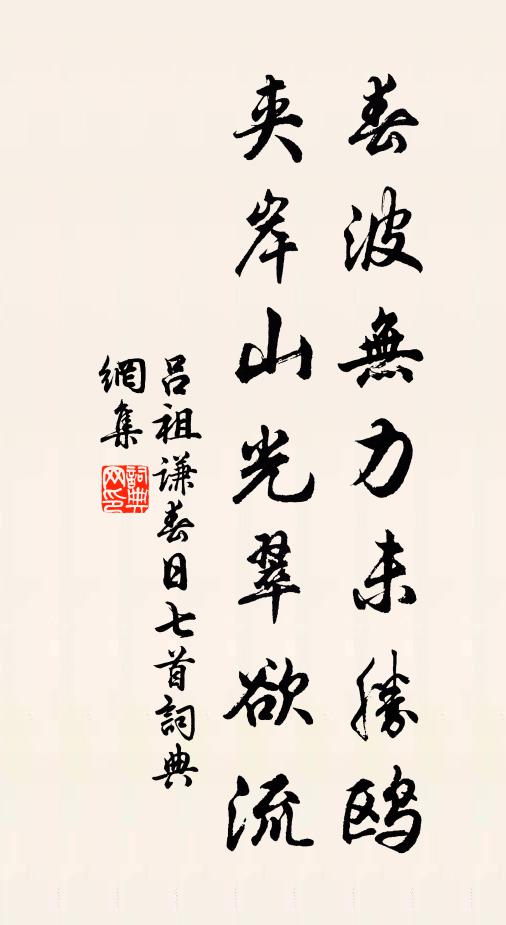 春波無力未勝鷗
夾岸山光翠欲流
呂祖謙春日七首詞典
網集
詞典
网印